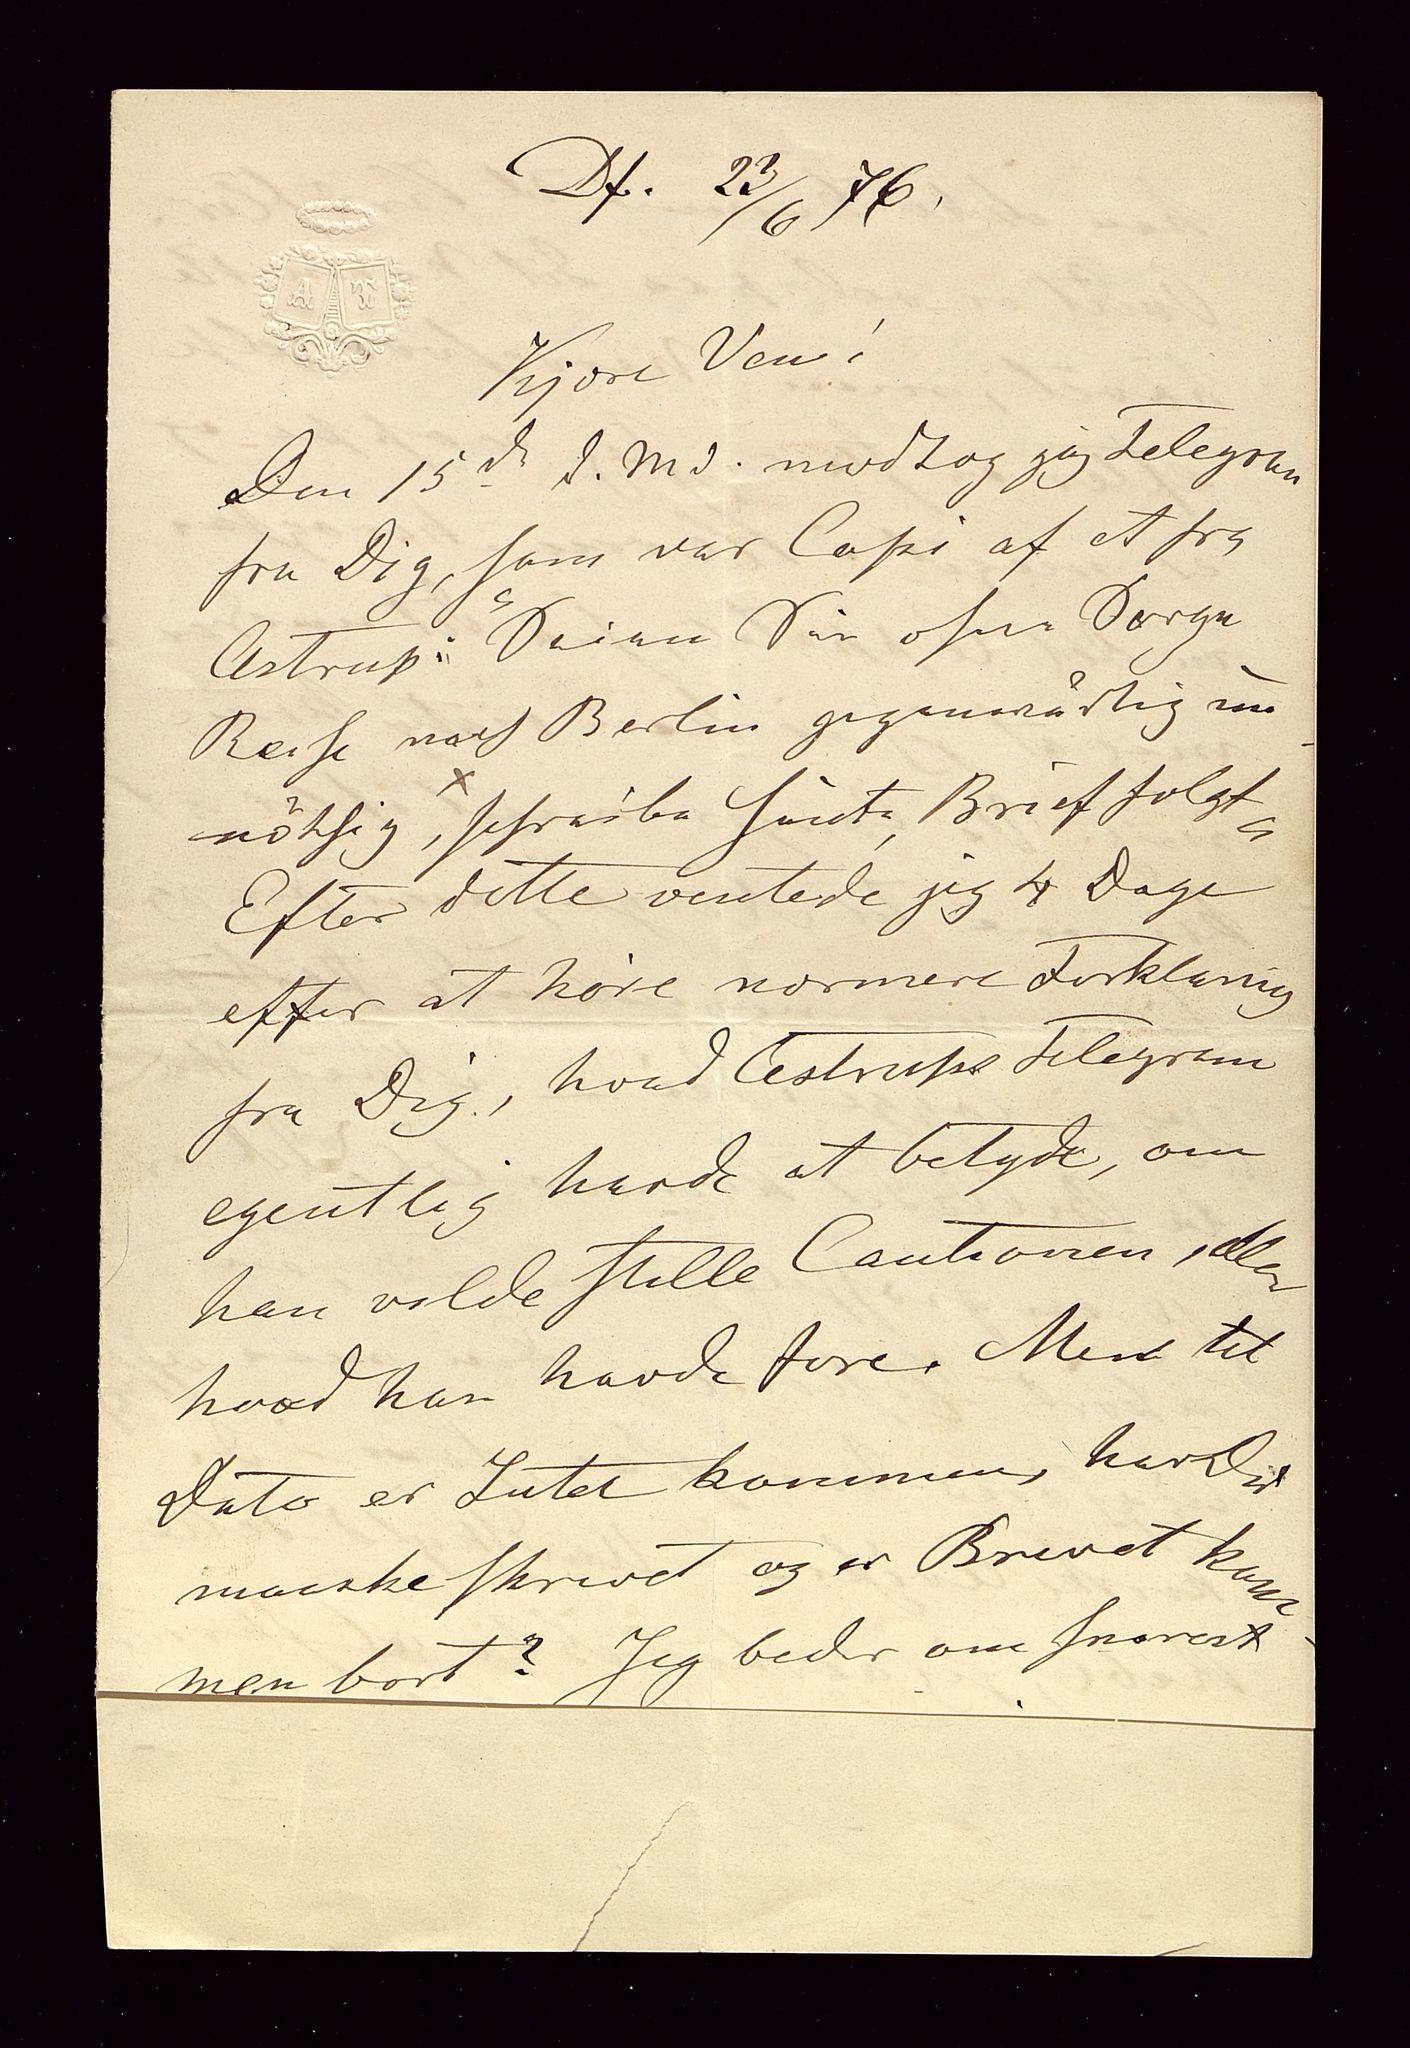 Df. 23/6 76.
A T
Kjære Ven!
Den 15de d. Md. modtog jeg Telegram
fra Dig, som var Copi af et fra
Astrup: "Seien Sie ohne Sorge
Reise nach Berlin gegenwärtig un-
nöthig, schreibe heute, Brief folgt"
Efter dette ventede jeg 4 Dage
efter at høre nærmere Forklaring
fra Dig, hvad Astrups Telegram
egentlig havde at betyde, om
han vilde stille Cautionen, eller
hvad han havde fore. Men til
Dato er Intet kommen, har Du
maaske skrevet og er Brevet kom-
men bort? Jeg beder om snarest